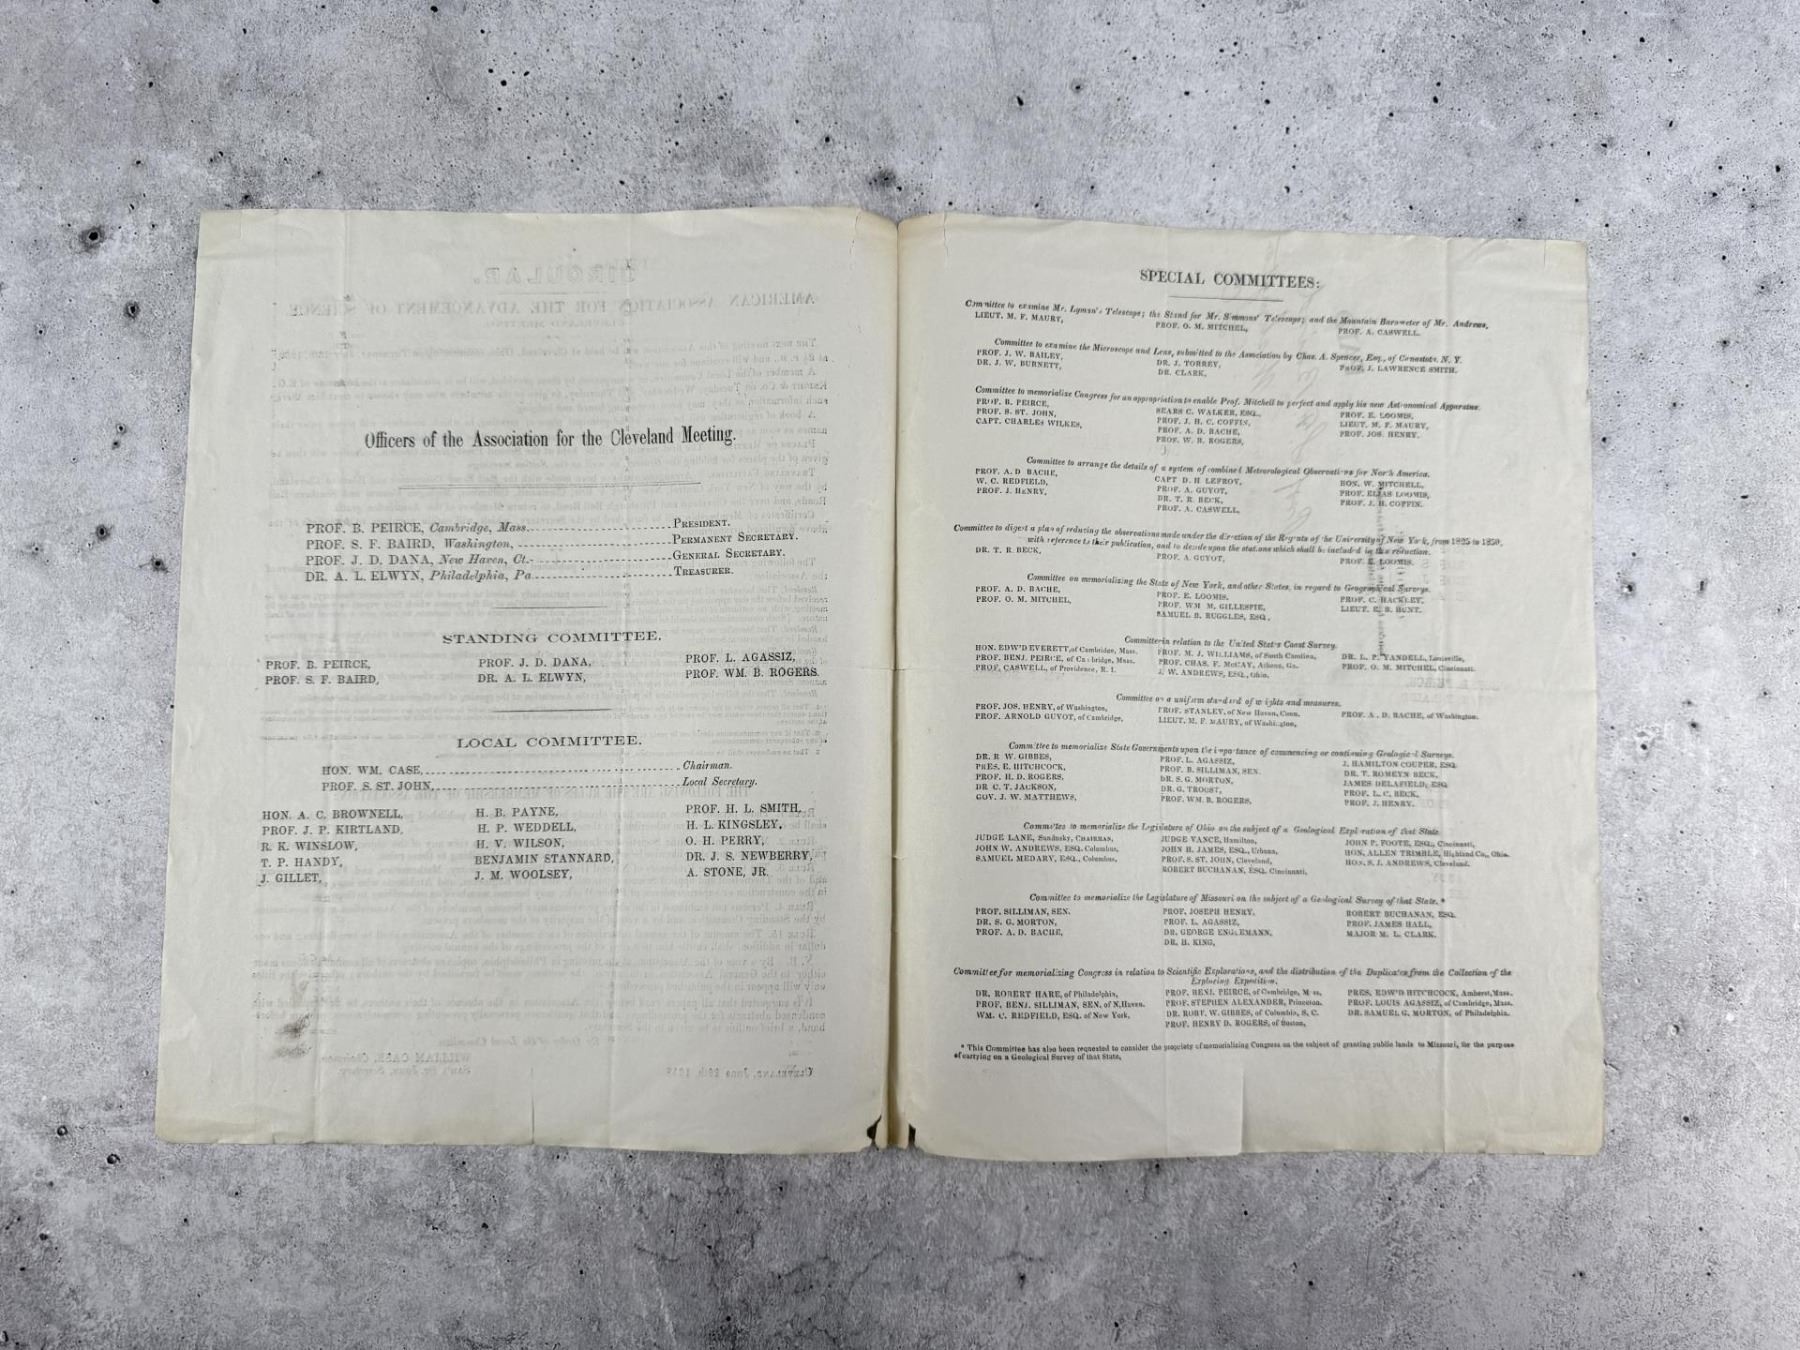 Officers of the Association for the Cleveland Meeting.
PROF. B. PEIRCE, Cambridge, Mass. PRESIDENT.
PROF. S. F. BAIRD, Washington, PERMANENT SECRETARY.
PROF. J. D. DANA, New Haven, Ct. GENERAL SECRETARY.
DR. A. L. ELWYN, Philadelphia, Pa. TREASURER.
STANDING COMMITTEE.
PROF. B. PEIRCE, PROF. J. D. DANA, PROF. L. AGASSIZ,
PROF. S. F. BAIRD, DR. A. L. ELWYN, PROF. WM. B. ROGERS.
LOCAL COMMITTEE.
HON. WM. CASE, Chairman.
PROF. S. ST. JOHN, Local Secretary.
HON. A. C. BROWNELL, H. B. PAYNE, PROF. H. L. SMITH,
PROF. J. P. KIRTLAND, H. P. WEDDELL, H. L. KINGSLEY,
R. K. WINSLOW, H. V. WILSON, O. H. PERRY,
T. P. HANDY, BENJAMIN STANNARD, DR. J. S. NEWBERRY,
J. GILLET, J. M. WOOLSEY, A. STONE, JR.
SPECIAL COMMITTEES:
Committee to examine Mr. Lyman's Telescope; the Stand for Mr. Simmons' Telescope; and the Mountain Barometer of Mr. Andrews,
LIEUT. M. F. MAURY, PROF. O. M. MITCHEL, PROF. A. CASWELL.
Committee to examine the Microscope and Lens, submitted to the Association by Chas. A. Spencer, Esq., of Canastota, N. Y.
PROF. J. W. BAILEY, DR. J. TORREY, PROF. J. LAWRENCE SMITH.
DR. J. W. BURNETT, DR. CLARK,
Committee to memorialize Congress for an appropriation to enable Prof. Mitchell to perfect and apply his new Astronomical Apparatus.
PROF. B. PEIRCE, SEARS C. WALKER, ESQ., PROF. E. LOOMIS,
PROF. S. ST. JOHN, PROF. J. H. C. COFFIN, LIEUT. M. F. MAURY,
CAPT. CHARLES WILKES, PROF. A. D. BACHE, PROF. JOS. HENRY.
PROF. W. B. ROGERS,
Committee to arrange the details of a system of combined Meteorological Observations for North America.
PROF. A. D BACHE, CAPT D. H LEFROY, HON. W. MITCHELL,
W. C. REDFIELD, PROF. A. GUYOT, PROF. ELIAS LOOMIS,
PROF. J. HENRY, DR. T. R. BECK, PROF. J. H. COFFIN.
PROF. A. CASWELL,
Committee to digest a plan of reducing the observations made under the direction of the Regents of the University of New York, from 1825 to 1850,
with reference to their publication, and to decide upon the stations which shall be included in this reduction.
DR. T. R. BECK, PROF. A. GUYOT, PROF. E. LOOMIS.
Committee on memorializing the State of New York, and other States, in regard to Geographical Surveys.
PROF. A. D. BACHE, PROF. E. LOOMIS, PROF. C. HACKLEY,
PROF. O. M. MITCHEL, PROF. WM M. GILLESPIE, LIEUT. E. B. HUNT.
SAMUEL B. RUGGLES, ESQ.,
Committee in relation to the United States Coast Survey.
HON. EDW'D EVERETT, of Cambridge, Mass. PROF. M. J. WILLIAMS, of South Carolina, DR. L. P. YANDELL, Louisville,
PROF. BENJ. PEIRCE, of Cambridge, Mass. PROF. CHAS. F. McCAY, Athens, Ga. PROF. O. M. MITCHEL, Cincinnati.
PROF. CASWELL, of Providence, R. I. J. W. ANDREWS, ESQ., Ohio.
Committee on a uniform standard of weights and measures.
PROF. JOS. HENRY, of Washington, PROF. STANLEY, of New Haven, Conn. PROF. A. D. BACHE, of Washington.
PROF. ARNOLD GUYOT, of Cambridge, LIEUT. M. F. MAURY, of Washington,
Committee to memorialize State Governments upon the importance of commencing or continuing Geological Surveys.
DR. R W. GIBBES, PROF. L. AGASSIZ, J. HAMILTON COUPER, ESQ.
PRES. E. HITCHCOCK, PROF. B. SILLIMAN, SEN. DR. T. ROMEYN BECK,
PROF. H. D. ROGERS, DR. S. G. MORTON, JAMES DELAFIELD, ESQ
DR C. T. JACKSON, DR. G. TROOST, PROF. L. C. BECK,
GOV. J. W. MATTHEWS, PROF. WM. B. ROGERS, PROF. J. HENRY.
Committee to memorialize the Legislature of Ohio on the subject of a Geological Exploration of that State
JUDGE LANE, Sandusky, CHAIRMAN, JUDGE VANCE, Hamilton, JOHN P. FOOTE, ESQ., Cincinnati,
JOHN W. ANDREWS, ESQ., Columbus, JOHN H. JAMES, ESQ., Urbana, HON. ALLEN TRIMBLE, Highland Co., Ohio.
SAMUEL MEDARY, ESQ., Columbus, PROF. S. ST. JOHN, Cleveland, HON. S. J. ANDREWS, Cleveland.
ROBERT BUCHANAN, ESQ. Cincinnati,
Committee to memorialize the Legislature of Missouri on the subject of a Geological Survey of that State. *
PROF. SILLIMAN, SEN. PROF. JOSEPH HENRY, ROBERT BUCHANAN, ESQ.
DR. S. G. MORTON, PROF. L. AGASSIZ, PROF. JAMES HALL,
PROF. A. D. BACHE, DR. GEORGE ENGLEMANN, MAJOR M. L. CLARK.
DR. H. KING,
Committee for memorializing Congress in relation to Scientific Explorations, and the distribution of the Duplicates from the Collection of the
Exploring Expedition.
DR. ROBERT HARE, of Philadelphia, PROF. BENJ. PEIRCE, of Cambridge, Mass, PRES. EDW'D HITCHCOCK, Amherst, Mass.
PROF. BENJ. SILLIMAN, SEN, of N. Haven. PROF. STEPHEN ALEXANDER, Princeton. PROF. LOUIS AGASSIZ, of Cambridge, Mass.
WM. C. REDFIELD, ESQ. of New York, DR. ROBT. W. GIBBES, of Columbia, S. C. DR. SAMUEL G. MORTON, of Philadelphia.
PROF. HENRY D. ROGERS, of Boston,
* This Committee has also been requested to consider the propriety of memorializing Congress on the subject of granting public lands to Missouri, for the purpose
of carrying on a Geological Survey of that State,